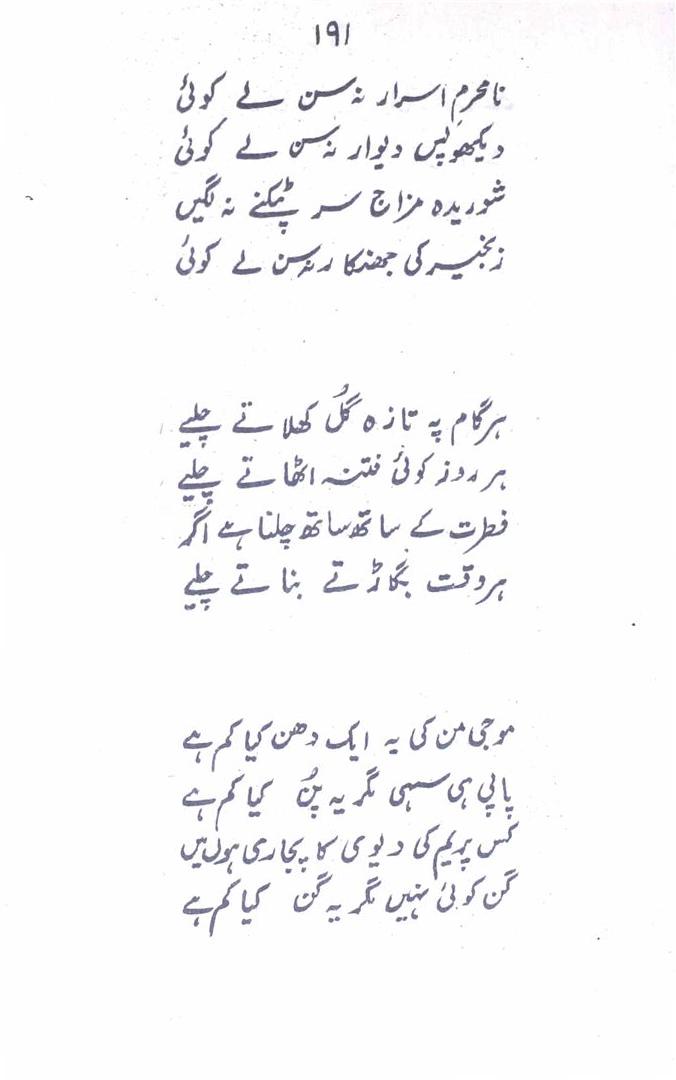 ۱۹۱
نامحرمِ اسرار نہ سن لے کوئی
دیکھو پس دیوار نہ سن لے کوئی
شوریدہ مزاج سر پٹکنے نہ لگیں
زنجیر کی جھنکار نہ سن لے کوئی
ہر گام پہ تازہ گُل کھلاتے چلیے
ہر روز کوئی فتنہ اٹھاتے چلیے
فطرت کے ساتھ ساتھ چلنا ہے اگر
ہر وقت بگاڑتے بناتے چلیے
موجی من کی یہ ایک دھن کیا کم ہے
پاپی ہی سہی مگر یہ پُن کیا کم ہے
کس پریم کی دیوی کا پجاری ہوں میں
گن کوئی نہیں مگر یہ گن کیا کم ہے